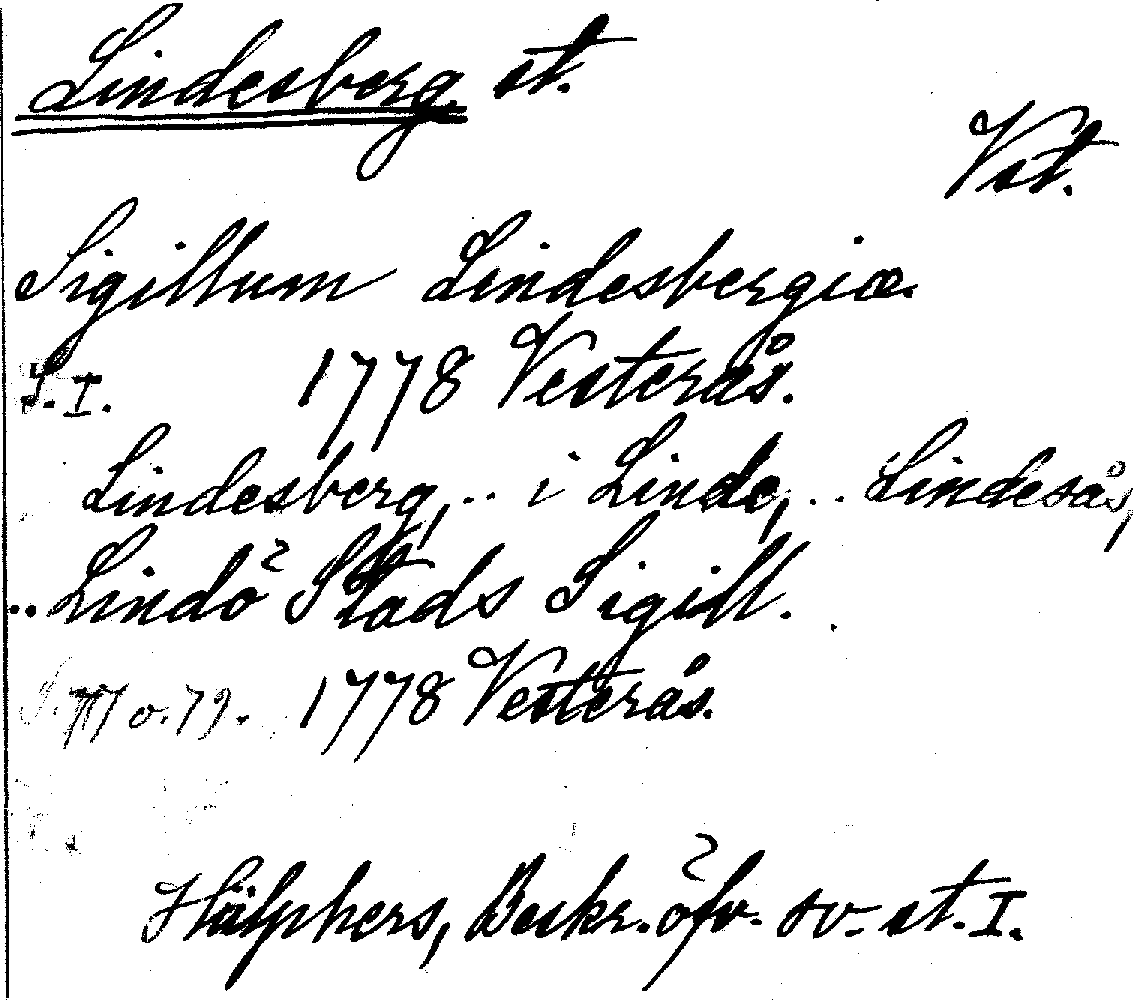 Lindesberg st.
Vst.
Sigillum Lindesbergiæ.
S. I. 1778 Vesterås.
Lindesberg, .. i Linde, .. Lindesås,
.. Lindö Stads Sigill.
S. 77 o. 79. 1778 Vesterås.
Hülphers, Beskr. öfv. sv. st. I.